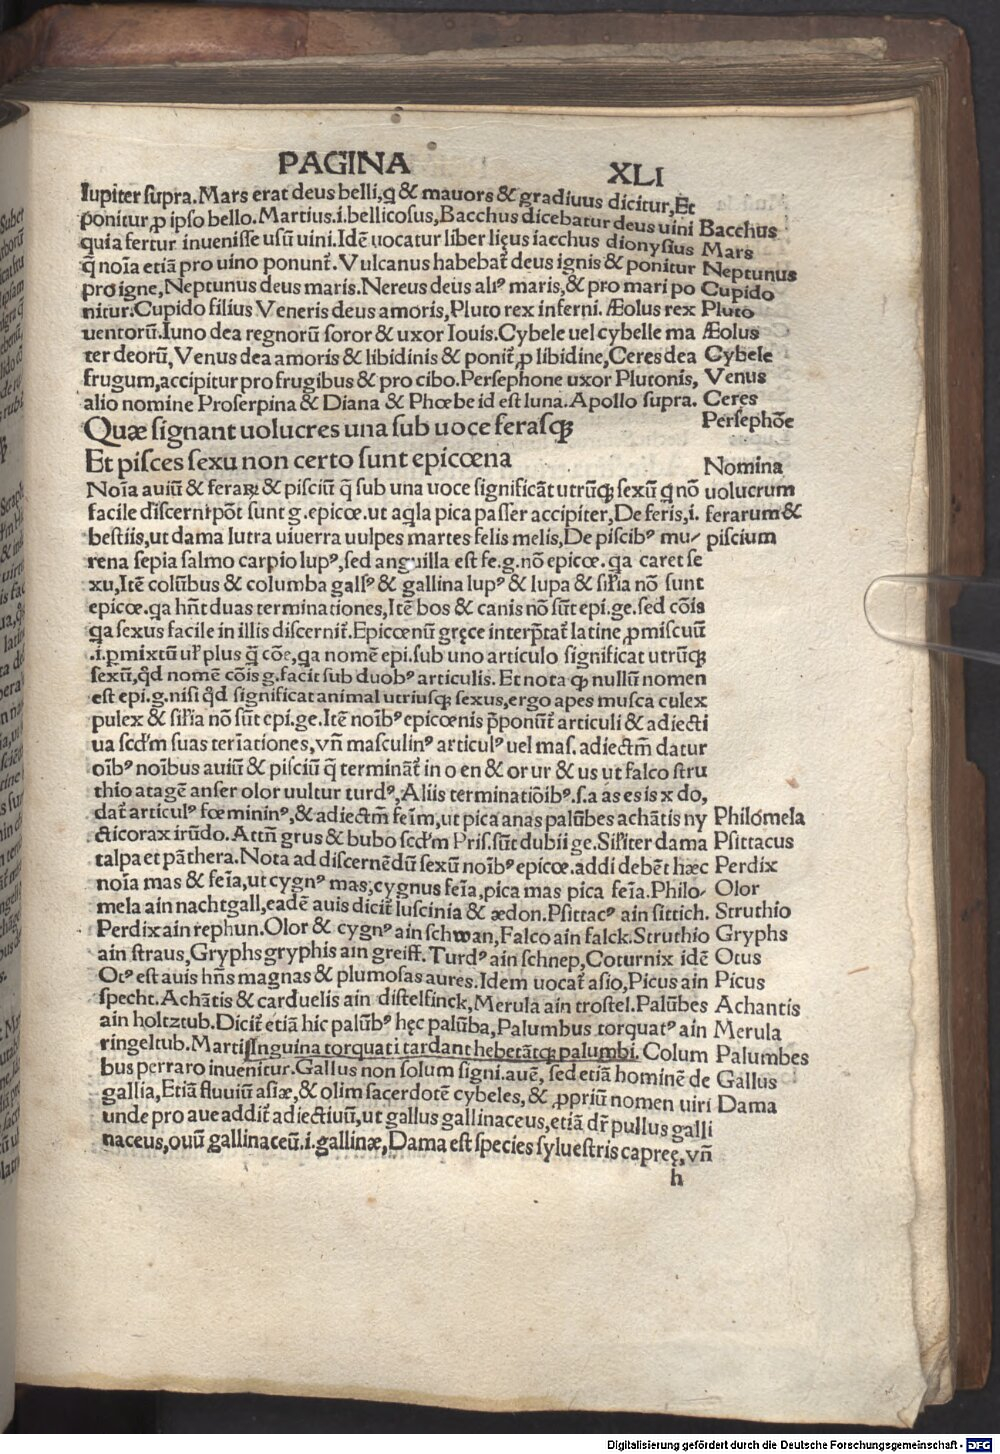 PAGINA XLI
Iupiter supra. Mars erat deus belli, q̃ & mauors & gradiuus dicitur, Et
ponitur ꝓ ipso bello. Martius .i. bellicosus, Bacchus dicebatur deus uini Bacchus
quia fertur inuenisse usũ uini. Idẽ uocatur liber lięus iacchus dionysius Mars
q̃ noĩa etiã pro uino ponunt̃. Vulcanus habebat̃ deus ignis & ponitur Neptunus
pro igne, Neptunus deus maris. Nereus deus aliꝰ maris, & pro mari po Cupido
nitur. Cupido filius Veneris deus amoris, Pluto rex inferni. Æolus rex Pluto
uentorũ. Iuno dea regnorũ soror & uxor Iouis. Cybele uel cybelle ma Æolus
ter deorũ, Venus dea amoris & libidinis & ponit̃ ꝓ libidine, Ceres dea Cybele
frugum, accipitur pro frugibus & pro cibo. Persephone uxor Plutonis, Venus
alio nomine Proserpina & Diana & Phœbe id est luna. Apollo supra. Ceres
Persephõe
Quæ signant uolucres una sub uoce ferasꝗ
Et pisces sexu non certo sunt epicœna Nomina
Noĩa auiũ & feraꝝ & pisciũ q̃ sub una uoce significãt utrũꝗ sexũ q̃ nõ uolucrum
facile discerni põt sunt g. epicœ. ut aq̃la pica passer accipiter, De feris, i. ferarum &
bestiis, ut dama lutra uiuerra uulpes martes felis melis, De piscibꝰ mu- piscium
rena sepia salmo carpio lupꝰ, sed anguilla est fe. g. nõ epicœ. q̃a caret se
xu, Itẽ colũbus & columba gallꝰ & gallina lupꝰ & lupa & sil̃ia nõ sunt
epicœ. q̃a hñt duas terminationes, Itẽ bos & canis nõ sũt epi. ge. sed cõis
q̃a sexus facile in illis discernit̃. Epicœnũ gręce interp̃tat̃ latine ꝓmiscuũ
.i. ꝑmixtũ ul̃ plus q̃ cõe, q̃a nomẽ epi. sub uno articulo significat utrũꝗ
sexũ, q̃d nomẽ cõis g. facit sub duobꝰ articulis. Et nota ꝙ nullũ nomen
est epi. g. nisi q̃d significat animal utriusꝗ sexus, ergo apes musca culex
pulex & sil̃ia nõ sũt epi. ge. Itẽ noĩbꝰ epicœnis p̃ponũt̃ articuli & adiecti
ua scd̃m suas teriãtiones, vñ masculinꝰ articulꝰ uel mas. adiectm̃ datur
oĩbꝰ noĩbus auiũ & pisciũ q̃ terminãt̃ in o en & or ur & us ut falco stru
thio atagẽ anser olor uultur turdꝰ, Aliis terminatiõibꝰ .s. a as es is x do,
dat̃ articulꝰ fœmininꝰ, & adiectm̃ feĩm, ut pica anas palũbes achãtis ny Philomela
cticorax irũdo. Attñ grus & bubo scd̃m Pris. sũt dubii ge. Sil̃iter dama Psittacus
talpa et pãthera. Nota ad discernẽdũ sexũ noĩbꝰ epicœ. addi debẽt hæc Perdix
noĩa mas & feĩa, ut cygnꝰ mas, cygnus feĩa, pica mas pica feĩa. Philo- Olor
mela ain nachtgall, eadẽ auis dicit̃ luscinia & ædon. Psittacꝰ ain sittich. Struthio
Perdix ain rephun. Olor & cygnꝰ ain schwan, Falco ain falck. Struthio Gryphs
ain straus, Gryphs gryphis ain greiff. Turdꝰ ain schnep, Coturnix idẽ Otus
Otꝰ est auis hñs magnas & plumosas aures. Idem uocat̃ asio, Picus ain Picus
specht. Achãtis & carduelis ain distelfinck, Merula ain trostel. Palũbes Achantis
ain holtztub. Dicit̃ etiã hic palũbꝰ hęc palũba, Palumbus torquatꝰ ain Merula
ringeltub. Marti. Inguina torquati tardant hebetãtꝗ palumbi. Colum Palumbes
bus perraro inuenitur. Gallus non solum signi. auẽ, sed etiã hominẽ de Gallus
gallia, Etiã fluuiũ asiæ, & olim sacerdotẽ cybeles, & ꝓpriũ nomen uiri Dama
unde pro aue addit̃ adiectiuũ, ut gallus gallinaceus, etiã dr̃ pullus galli
naceus, ouũ gallinaceũ .i. gallinæ, Dama est species syluestris capreę, vñ
h
Digitalisierung gefördert durch die Deutsche Forschungsgemeinschaft - DFG